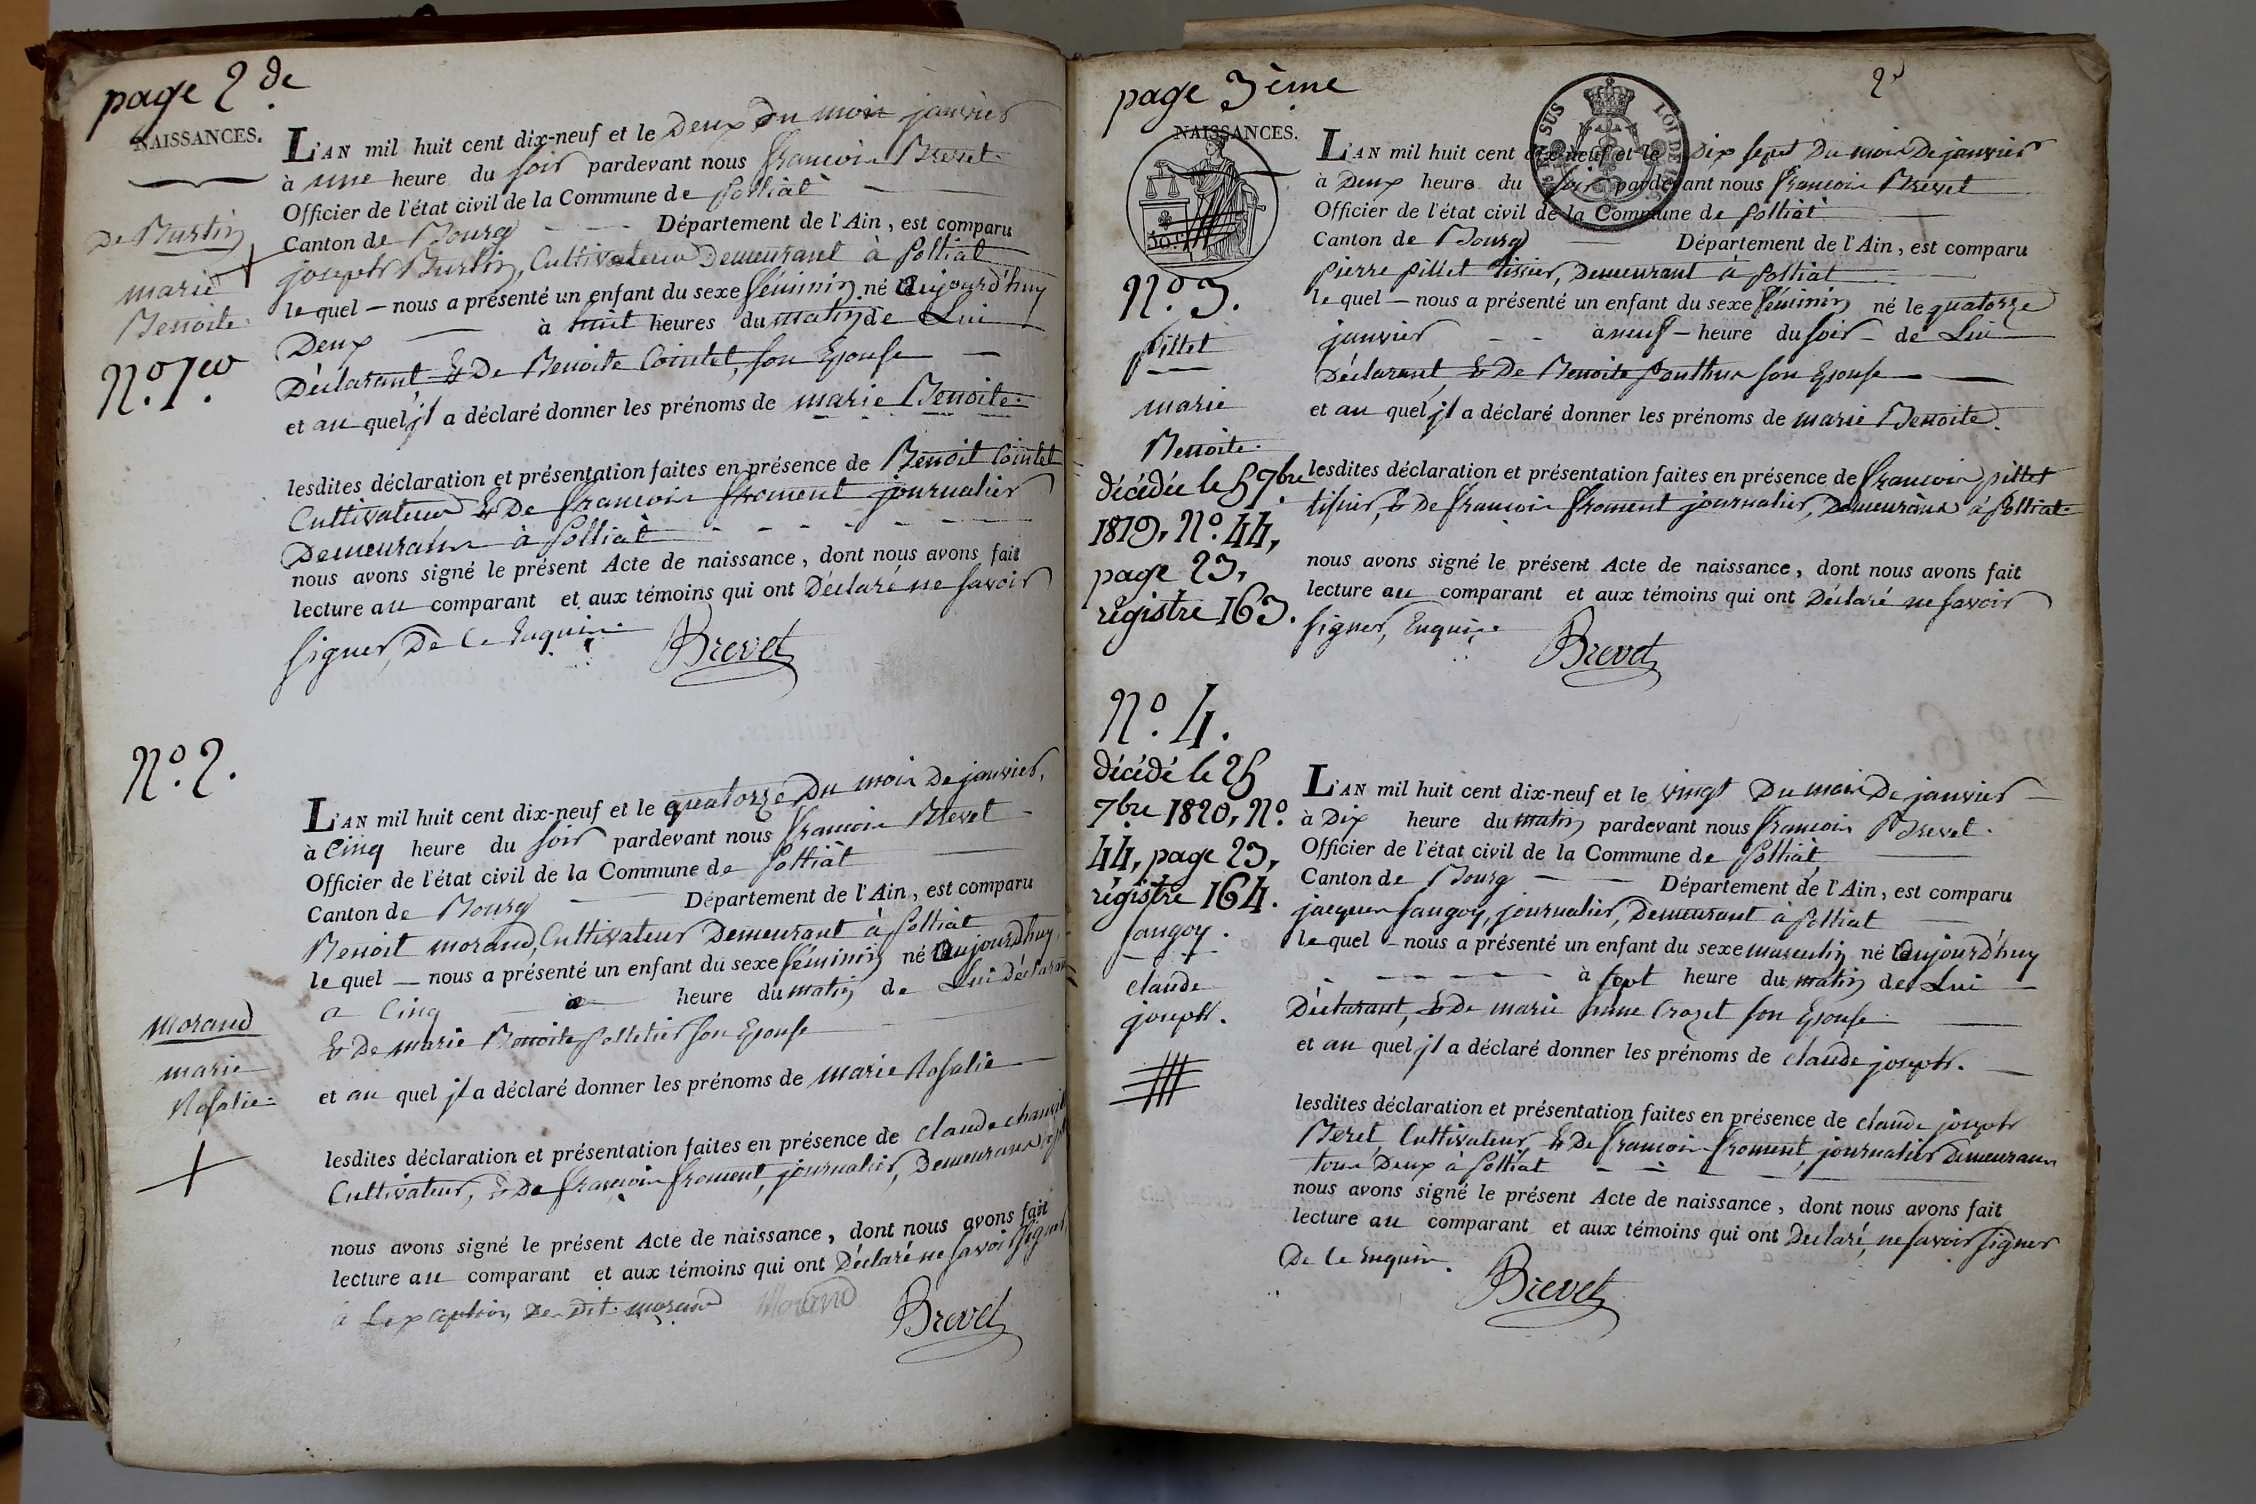 page 2.de
NAISSANCES.
L'AN mil huit cent dix-neuf et le Deux Du mois janvier
à une heure du soir pardevant nous françois Brevet
Officier de l'état civil de la Commune de polliat
Canton de Bourg Département de l'Ain, est comparu
joseph Burtin, Cultivateur Demeurant à polliat
le quel nous a présenté un enfant du sexe féminin né aujourd'huy
Deux à huit heures du matin de Lui
Déclarant & De Benoite Cointet, son Epouse
et au quel jl a déclaré donner les prénoms de marie Benoite.
lesdites déclaration et présentation faites en présence de Benoit Cointet
Cultivateur & De françois froment journalier
Demeurans à polliat
nous avons signé le présent Acte de naissance, dont nous avons fait
lecture au comparant et aux témoins qui ont Déclaré ne savoir
signer, De Ce Enquis.
Brevet
De Burtin
marie
Benoite.
N.o 1.er
N.o 2.
L'AN mil huit cent dix-neuf et le quatorze Du mois De janvier,
à Cinq heure du soir pardevant nous françois Brevet
Officier de l'état civil de la Commune de polliat
Canton de Bourg Département de l'Ain, est comparu
Benoit morand, Cultivateur Demeurant à polliat
le quel nous a présenté un enfant du sexe féminin né aujourd'huy
a Cinq heure du matin de Lui Déclarant
& De marie Benoite pelletier son Epouse
et au quel jl a déclaré donner les prénoms de marie Rosalie
lesdites déclaration et présentation faites en présence de claude
Cultivateur, & De françois froment, journalier, Demeurans
nous avons signé le présent Acte de naissance, dont nous avons fait
lecture au comparant et aux témoins qui ont Déclaré ne savoir signer,
à Lexception Du dit morand Morand
Brevet
morand
marie
Rosalie.
page 3ème
2.e
NAISSANCES.
L'AN mil huit cent dix-neuf et le Dix sept Du mois De janvier
à Deux heure du soir pardevant nous françois Brevet
Officier de l'état civil de la Commune de polliat
Canton de Bourg Département de l'Ain, est comparu
pierre pillet tissier, Demeurant à polliat
le quel nous a présenté un enfant du sexe féminin né le quatorze
janvier à neuf heure du soir de Lui
Déclarant, & De Benoite ponthus son Epouse
et au quel jl a déclaré donner les prénoms de marie Benoite.
lesdites déclaration et présentation faites en présence de françois pillet
tissier, & De françois froment journalier, Demeurans à polliat
nous avons signé le présent Acte de naissance, dont nous avons fait
lecture au comparant et aux témoins qui ont Déclaré ne savoir
signer, Enquis
Brevet
N.o 3.
pillet
marie
Benoite.
décédée le 5 7.bre
1819, N.o 44,
page 23,
régistre 163.
N.o 4.
décédé le 25
7.bre 1820, N.o
44, page 23,
régistre 164.
sangoy.
claude
joseph.
L'AN mil huit cent dix-neuf et le vingt Du mois De janvier
à Dix heure du matin pardevant nous françois Brevet.
Officier de l'état civil de la Commune de polliat
Canton de Bourg Département de l'Ain, est comparu
jacques sangoy, journalier, Demeurant à polliat
le quel nous a présenté un enfant du sexe masculin né aujourd'huy
à sept heure du matin de Lui
Déclarant, & De marie anne Crozet son Epouse
et au quel jl a déclaré donner les prénoms de claude joseph.
lesdites déclaration et présentation faites en présence de claude joseph
Beret Cultivateur, & De françois froment, journalier Demeurans
tous Deux à polliat
nous avons signé le présent Acte de naissance, dont nous avons fait
lecture au comparant et aux témoins qui ont Déclaré, ne savoir signer
De Ce Enquis.
Brevet